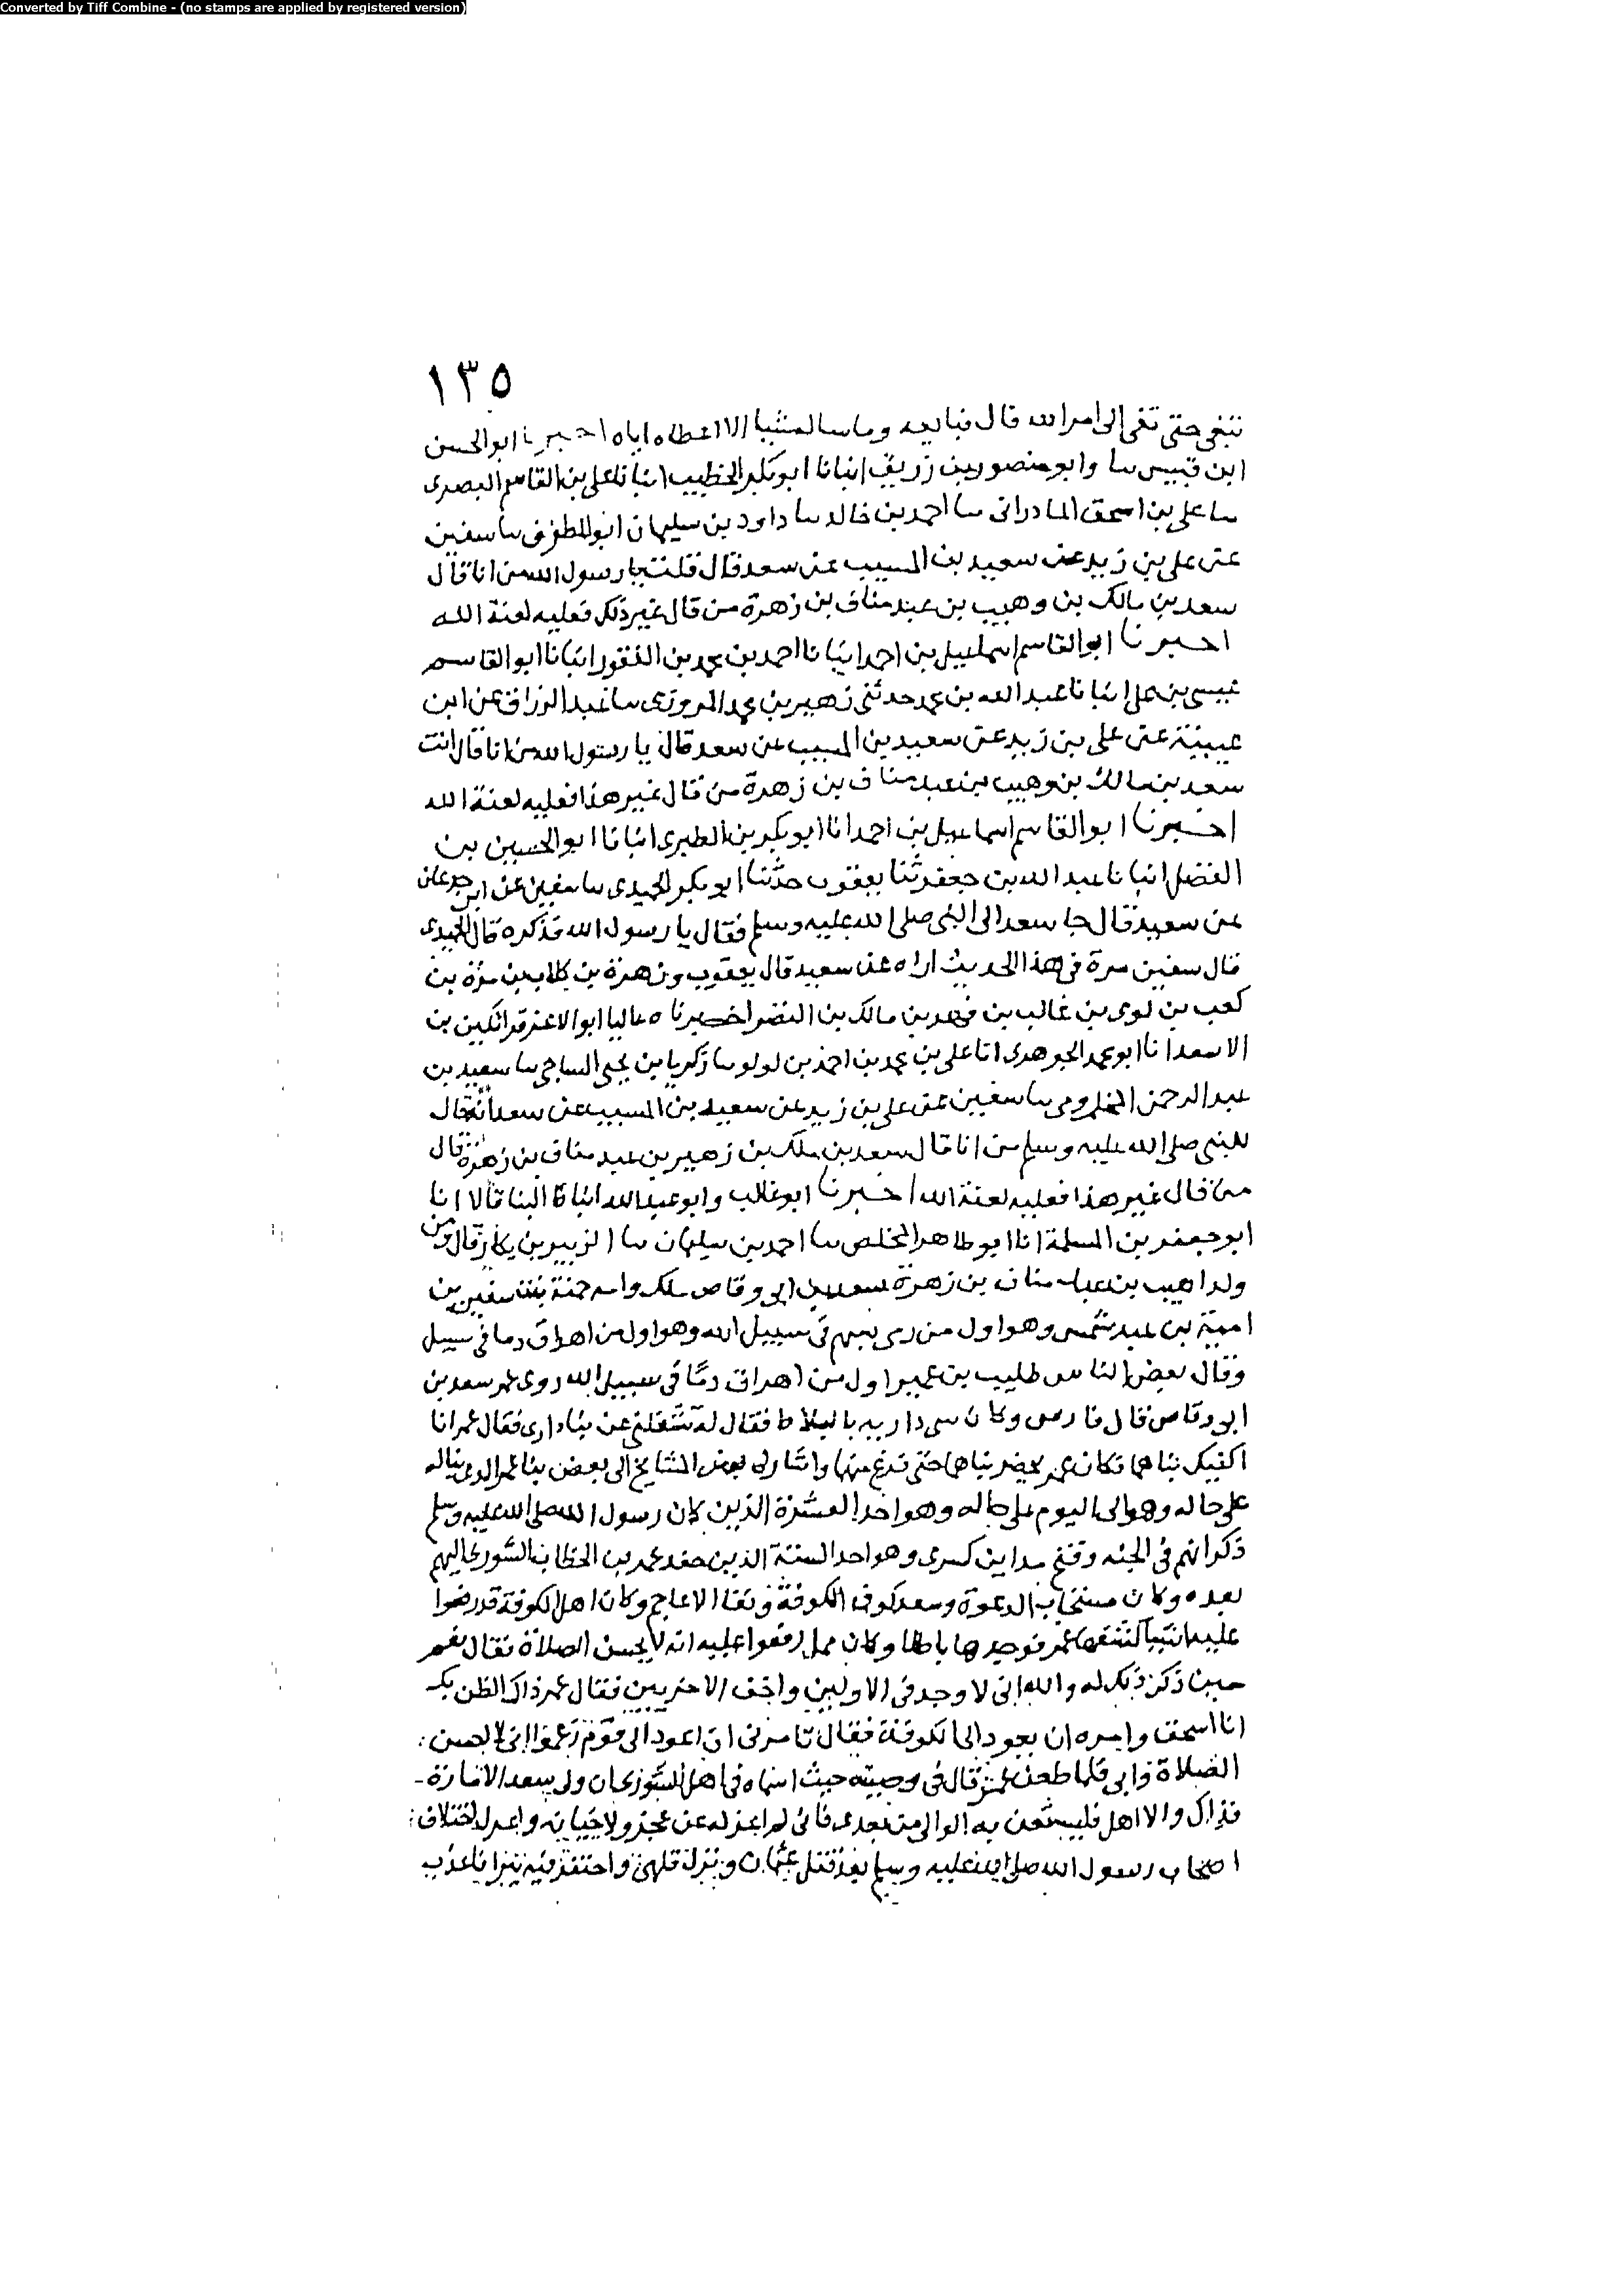 Converted by Tiff Combine - (no stamps are applied by registered version)
١٣٥
تبغى حتى تفى الى امر الله قال فبايعه وما سالم شيا الا اعطاه اياه اخبرنا ابو الحسن
ابن قبيس سا وابو منصور بن زريق انبانا ابو بكر الخطيب انبانا على بن القاسم البصرى
سا على بن اسحق المادرانى سا احمد بن خالد سا داود بن سليمان سا سفين
عن على بن زيد عن سعيد بن المسيب عن سعد قال قلت يا رسول الله من انا قال
سعد بن مالك بن وهيب بن عبد مناف بن زهرة من قال غير ذلك فعليه لعنة الله
اخبرنا ابو القاسم اسماعيل بن احمد انبانا احمد بن محمد بن النقور انبانا ابو القاسم
عيسى بن على انبانا عبد الله بن محمد حدثنى زهير بن محمد المروزى سا عبد الرزاق عن ابن
عيينة عن على بن زيد عن سعيد بن المسيب عن سعد قال يا رسول الله من انا قال انت
سعد بن مالك بن وهيب بن عبد مناف بن زهرة من قال غير هذا فعليه لعنة الله
اخبرنا ابو القاسم اسماعيل بن احمد انا ابو بكر بن الطبرى انبانا ابو الحسين بن
الفضل انبانا عبد الله بن جعفر ثنا يعقوب حدثنا ابو بكر الحميدى سا سفين عن ابن جدعان
عن سعيد قال جا سعد الى النبى صلى الله عليه وسلم فقال يا رسول الله فذكره قال الحميدى
قال سفين مرة فى هذا الحديث اراه عن سعيد قال يعقوب وزهرة بن كلاب بن مرة بن
كعب بن لوى بن غالب بن فهر بن مالك بن النضر اخبرناه عاليا ابو الاعز قراتكين بن
الاسعد انا ابو محمد الجوهرى انا على بن محمد بن احمد بن لولو سا زكريا بن يحيى الساجى سا سعيد بن
عبد الرحمن المخزومى سا سفين عن على بن زيد عن سعيد بن المسيب عن سعد انه قال
للنبى صلى الله عليه وسلم من انا قال سعد بن ملك بن زهير بن عبد مناف بن زهرة قال
من قال غير هذا فعليه لعنة الله اخبرنا ابو غالب وابو عبد الله انبانا البنا قالا انا
ابو جعفر بن المسلمة انا ابو طاهر المخلص سا احمد بن سليمان سا الزبير بن بكار قال ومن
ولد اهيب بن عبد مناف بن زهرة سعد بن ابى وقاص ملك وامه حمنة بنت سفين بن
امية بن عبد شمس وهو اول من رمى بسهم فى سبيل الله وهو اول من اهراق دما فى سبيل
وقال بعض الناس طليب بن عمير اول من اهراق دمًا فى سبيل الله روى عمر سعد بن
ابى وقاص قال فارس وكان داريه بالبلاط فقال له تشغلنى عن بنا دارى فقال عمر انا
اكفيك بناهما فكان عمر يحضر بناهما حتى فرغ منها واشار له بعض المشايخ الى بعض بنا عمر الذى بناله
على حاله وهو الى اليوم على حاله وهو احد العشرة الذين كان رسول الله صلى الله عليه وسلم
ذكر انهم فى الجنه وفتح مداين كسرى وهو احد الستة الذين جعل عمر بن الخطاب الشورى اليهم
بعده وكان مستجاب الدعوة وسعد كوف الكوفة ونفا الاعاجم وكان اهل الكوفة قد رفعوا
عليه اشيا كشفها عمر فوجدها باطلا وكان مما رفعوا عليه انه لا يحسن الصلاة فقال لعمر
حين ذكر ذلك له والله انى لاوجد فى الاوليين واخف الاخريين فقال عمر ذاك الظن بك
ابا اسحق وامره ان يعود الى الكوفة فقال تامرنى ان اعود الى قوم زعموا انى لا احسن
الصلاة فابى فلما طعن عمر قال فى وصيته حيث اسماه فى اهل الشورى ان ولى سعد الامارة
فذاك والا اهل فليستعن به الوالى من بعدى فانى لم اعزله عن عجز ولا خيانه واعتزل اختلاف
اصحاب رسول الله صلى الله عليه وسلم بعد قتل عثمان ونزل قلهى واحتفر فيه بيرا فاعذب